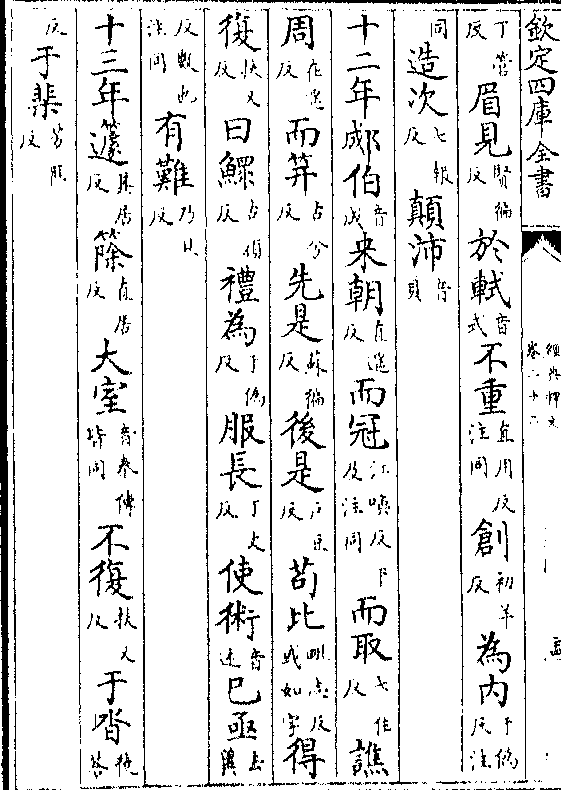 欽定四庫全書 經典釋文 卷二十二
丁管反 眉見賢徧反 於軾音式 不重直用反注同 創初羊反 為内于偽反注
同 造次七報反 顛沛音貝
十二年郕伯音成 来朝直遥反 而冠江喚反下及注同 而取七住反 譙
周在遥反 而筓古兮反 先是蘇徧反 後是户豆反 苟比毗志反或如字 得
復扶又反 曰鰥古頑反 禮為于偽反 服長丁丈反 使術音述 已亟去冀
反數也注同 有難乃旦反
十三年籧其居反 篨直居反 大室音泰傳皆同 不復扶又反 于沓徒荅
反 于棐芳尾反